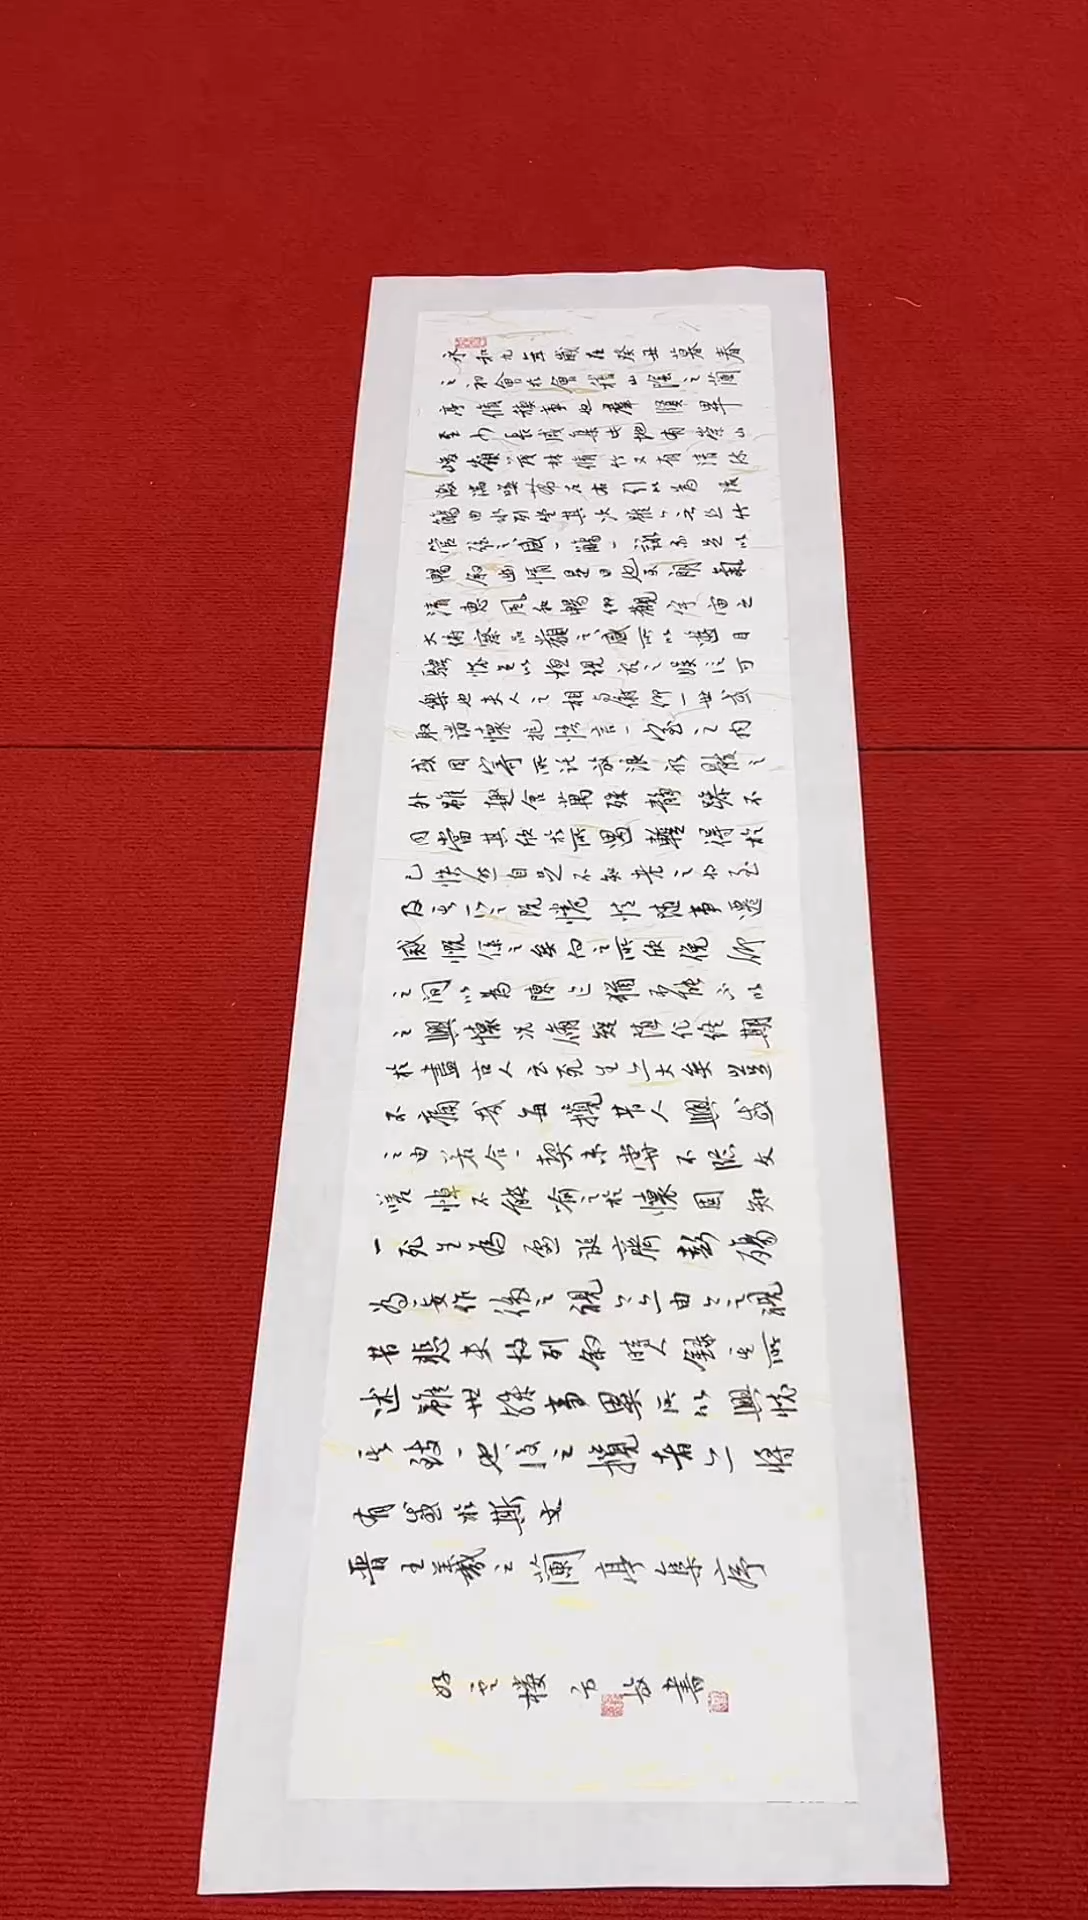 永和九年歲在癸丑暮春
之初會於會稽山陰之蘭
亭脩稧事也羣賢畢
至少長咸集此地有崇山
峻嶺茂林脩竹又有清流
激湍暎帶左右引以為流
觴曲水列坐其次雖無絲竹
管弦之盛一觴一詠亦足以
暢敘幽情是日也天朗氣
清惠風和暢仰觀宇宙之
大俯察品類之盛所以遊目
騁懷足以極視聽之娛信可
樂也夫人之相與俯仰一世或
取諸懷抱悟言一室之內
或因寄所託放浪形骸之
外雖趣舍萬殊靜躁不
同當其欣於所遇暫得於
己怏然自足不知老之將至
及其所之既惓情隨事遷
感慨係之矣向之所欣俛仰
之間以為陳迹猶不能不以
之興懷況脩短隨化終期
於盡古人云死生亦大矣豈
不痛哉每攬昔人興感
之由若合一契未嘗不臨文
嗟悼不能喻之於懷固知
一死生為虛誕齊彭殤
為妄作後之視今亦由今之視
昔悲夫故列敘時人錄其所
述雖世殊事異所以興懷
其致一也後之攬者亦將
有感於斯文
晉王羲之蘭亭集序
樓 書